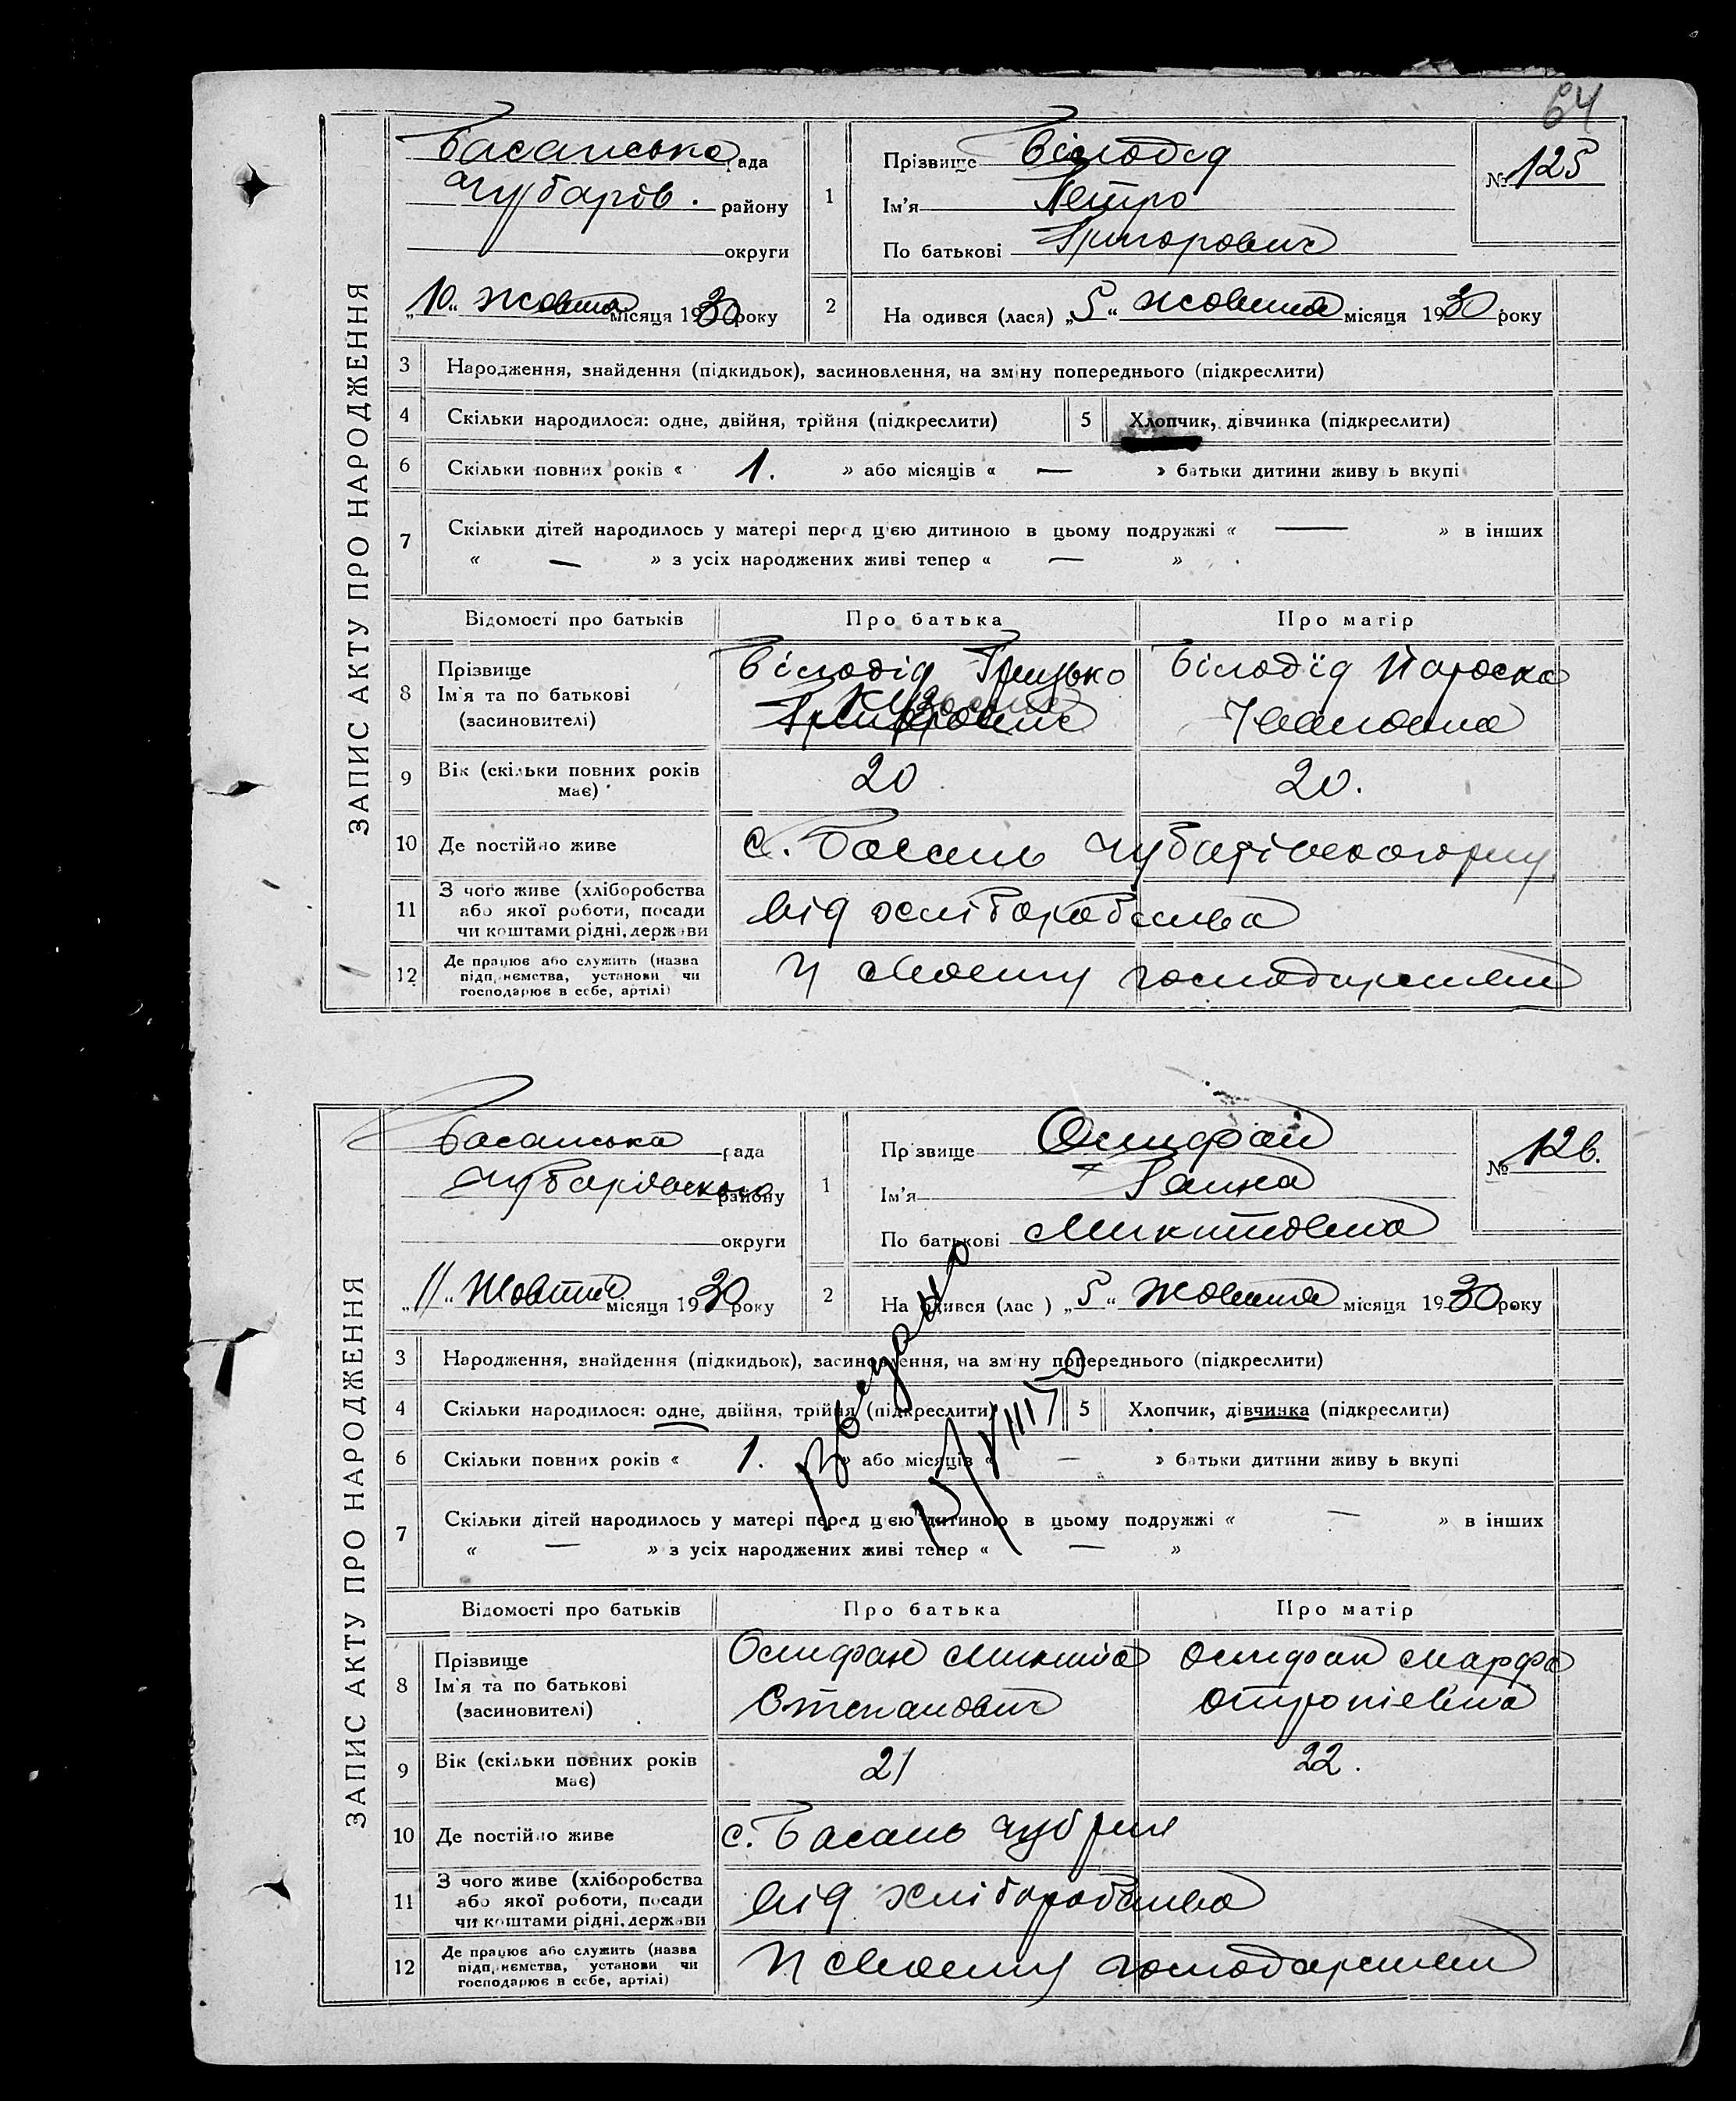 64
ЗАПИС АКТУ ПРО НАРОДЖЕННЯ
Басанська рада
Чубарів. району
округи
„10“ жовтня місяця 1930 року
1
Прізвище Білодід
Ім'я Петро
По батькові Григорович
№ 125
2
На одився (лася) „5“ жовтня місяця 1930 року
3 Народження, знайдення (підкидьок), засиновлення, на зміну попереднього (підкреслити)
4 Скільки народилося: одне, двійня, трійня (підкреслити)
5 Хлопчик, дівчинка (підкреслити)
6 Скільки повних років « 1. » або місяців « — » батьки дитини живу ь вкупі
7 Скільки дітей народилось у матері перед цією дитиною в цьому подружжі « — » в інших
« — » з усіх народжених живі тепер « — »
Відомості про батьків
Про батька
Про матір
8
Прізвище
Ім'я та по батькові
(засиновителі)
Білодід Грицько
Григорович
Білодїд Параска
Івановна
9 Вік (скільки повних років
має)
20
20.
10 Де постійно живе
с. Басань Чубарівського р-ну
11
З чого живе (хліборобства
або якої роботи, посади
чи коштами рідні, держави
від хліборобства
12
Де працює або служить (назва
підприємства, установи чи
господарює в себе, артілі)
У своєму господарстві
ЗАПИС АКТУ ПРО НАРОДЖЕННЯ
Басанська рада
Чубарівського району
округи
„11“ Жовтня місяця 1930 року
1
Прізвище
Ім'я Ганна
По батькові Микитовна
№ 126.
2
На одився (лас ) „5“ жовтня місяця 1930 року
3 Народження, знайдення (підкидьок), засиновлення, на зміну попереднього (підкреслити)
4 Скільки народилося: одне, двійня, трійня (підкреслити)
5 Хлопчик, дівчинка (підкреслити)
6 Скільки повних років « 1. » або місяців « — » батьки дитини живу ь вкупі
7 Скільки дітей народилось у матері перед цією дитиною в цьому подружжі « — » в інших
« — » з усіх народжених живі тепер « — »
Відомості про батьків
Про батька
Про матір
8
Прізвище
Ім'я та по батькові
(засиновителі)
Микита
Степанович
Марфа
9 Вік (скільки повних років
має)
21
22.
10 Де постійно живе
с. Басань Чуб р-ну
11
З чого живе (хліборобства
або якої роботи, посади
чи коштами рідні, держави
від хліборобства
12
Де працює або служить (назва
підприємства, установи чи
господарює в себе, артілі)
У своєму господарстві